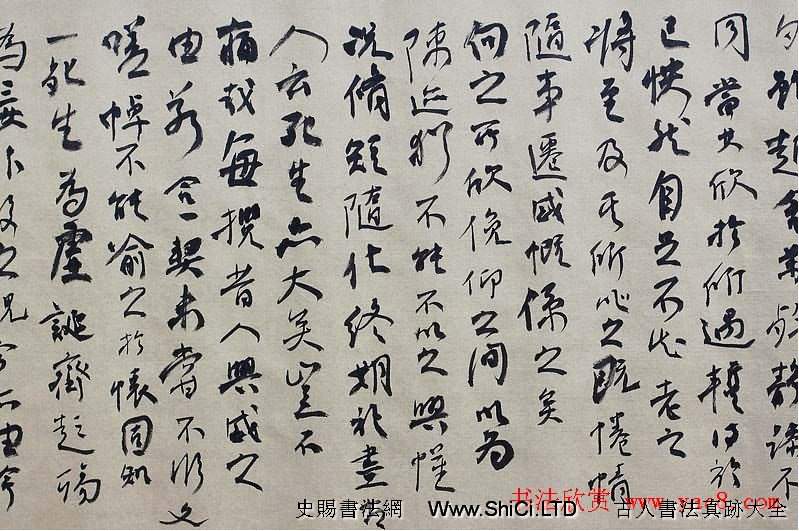 雖趣舍萬殊靜躁不
同當其欣於所遇得於
己快然自足不知老之
將至及其所之既惓情
隨事遷感慨係之矣
向之所欣俛仰之間以為
陳迹猶不能不以之興懷
況脩短隨化終期於盡古
人云死生亦大矣豈不
痛哉每攬昔人興感之
由若合一契未嘗不臨文
嗟悼不能喻之於懷固知
一死生為虛誕齊彭殤
為妄作後之視今亦由今
书法欣赏 www.yac8.com
史賜書法網 Www.ShiCi.LTD 古人書法真跡大全